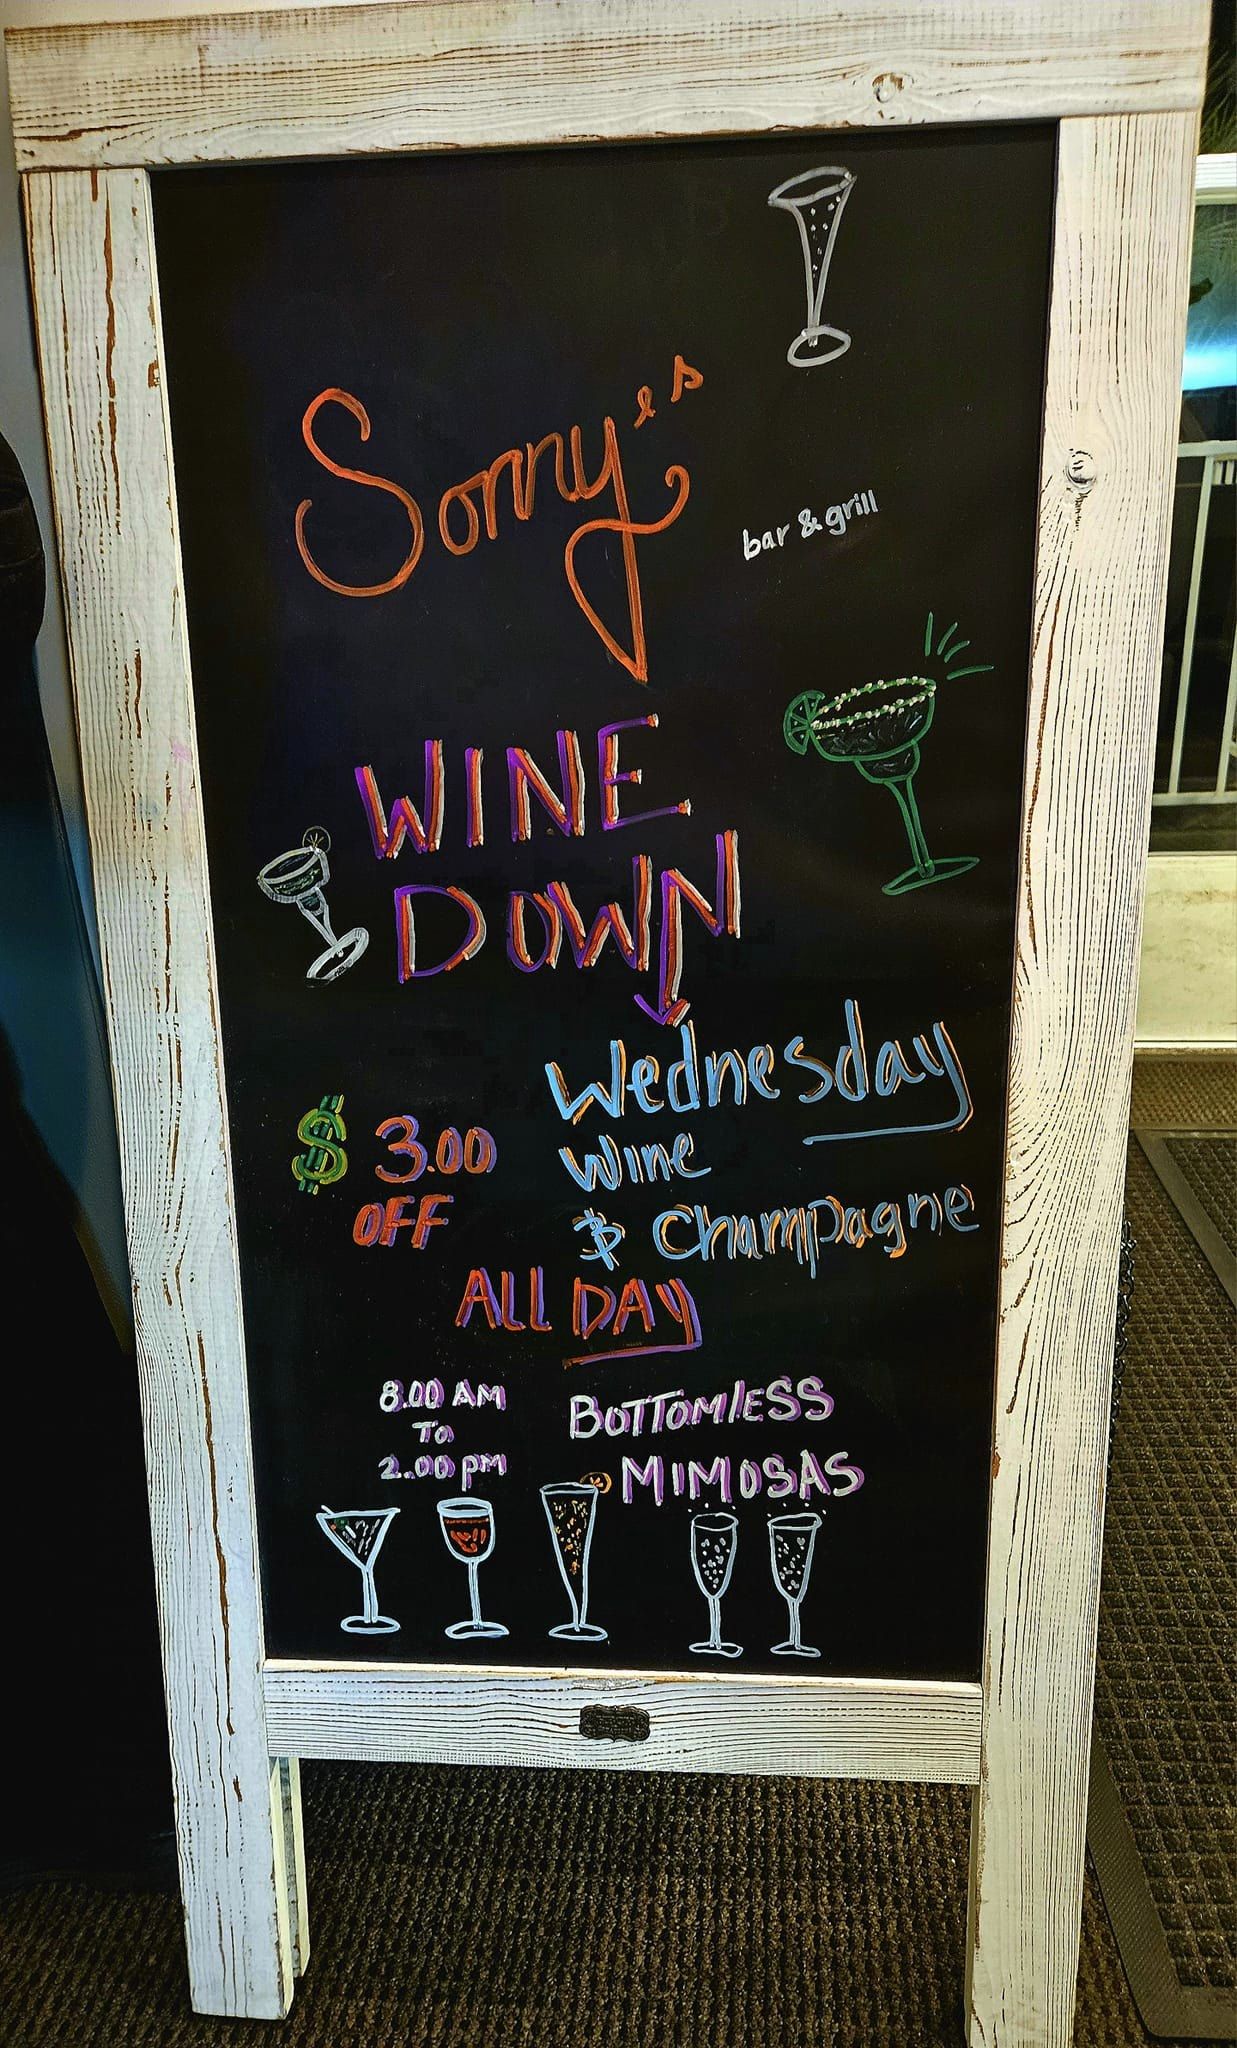 Sonny's
bar & grill
WINE
DOWN
Wednesday
$ 3.00
OFF
Wine
& Champagne
ALL DAY
8.00 AM
To
2.00 PM
BOTTOMLESS
MIMOSAS